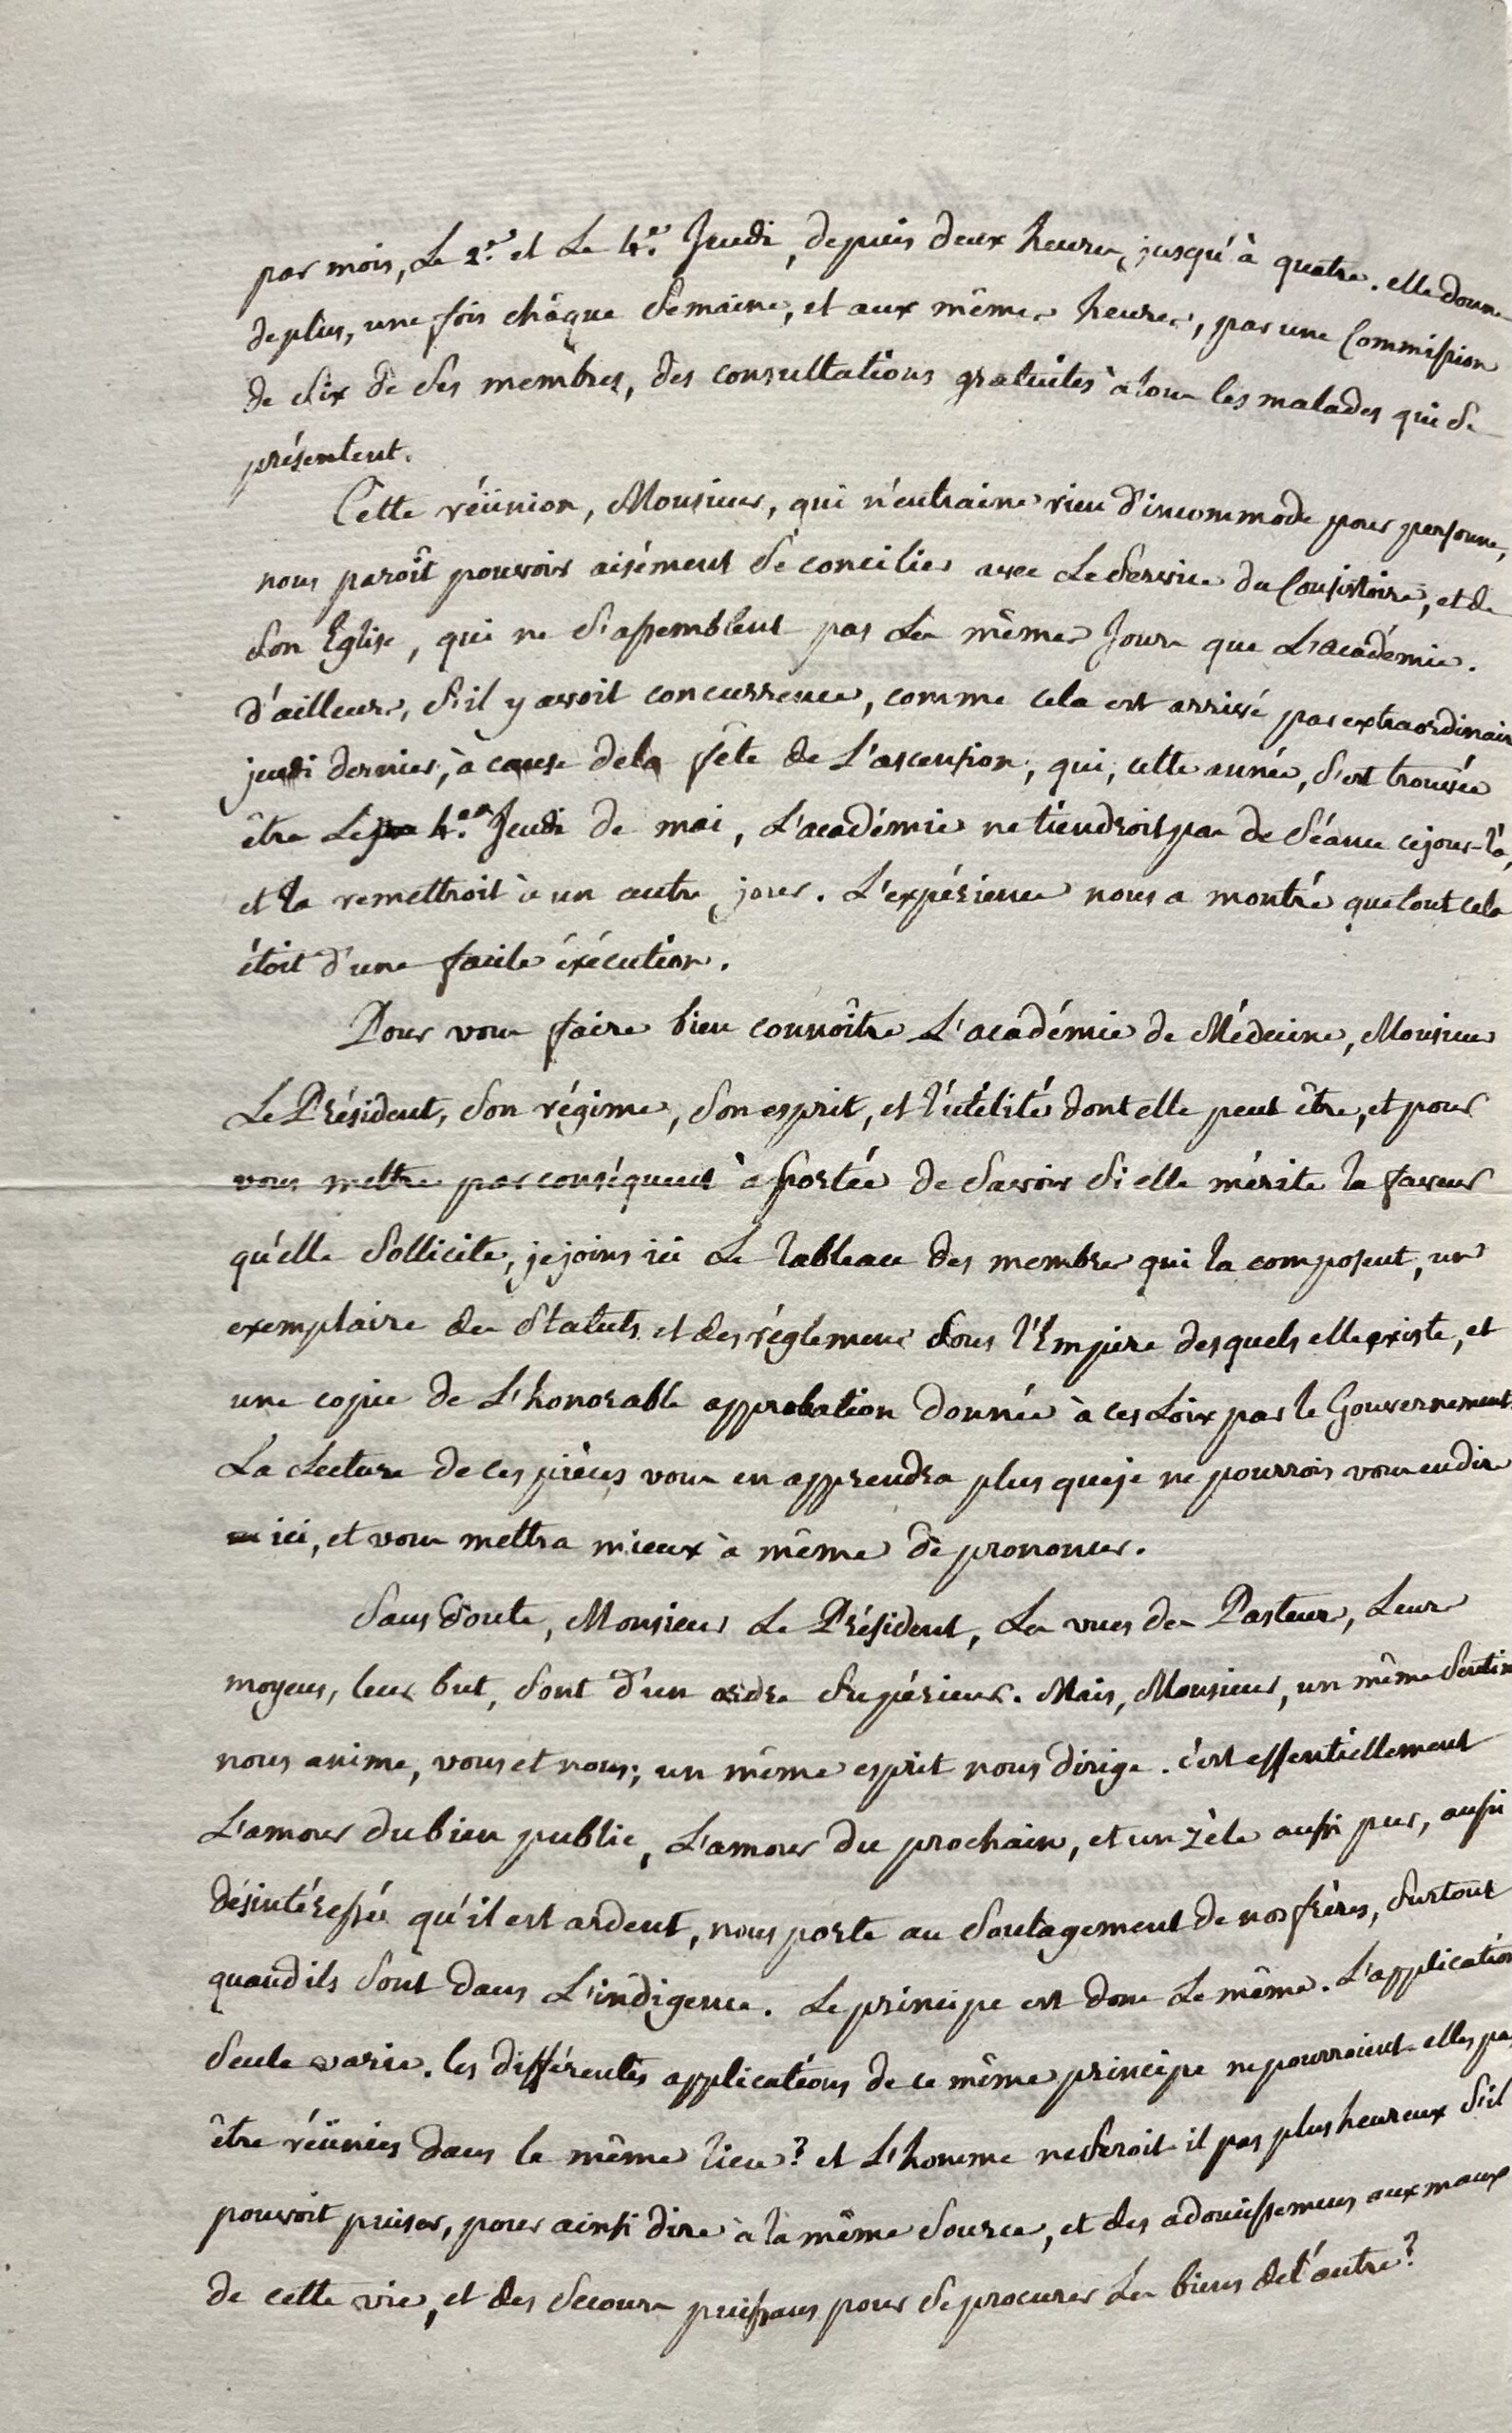 par mois, Le 2.e et Le 4.e Jeudi, depuis deux heures, jusqu'à quatre. elle donne
de plus, une fois châque Semaine, et aux mêmes heures, par une Commission
de Six de Ses membres, des consultations gratuites à tous les malades qui Se
présentent.
Cette réünion, Monsieur, qui n'entraine rien d'incommode pour personne,
nous paroît pouvoir aisément Se concilier avec Le Service du Consistoire, et de
Son Eglise, qui ne S'assemblent pas Les mêmes Jours que L'académie.
d'ailleurs, S'il y avoit concurrence, comme cela est arrivé par extraordinaire
jeudi dernier, à cause de la fête de L'ascension, qui, cette année, S'est trouvée
être Le 4.e Jeudi de mai, L'académie ne tiendroit pas de Séance ce jour-là,
et la remettroit à un autre jour. L'expérience nous a montré que tout cela
étoit d'une facile éxécution.
Pour vous faire bien connoître L'académie de Médecine, Monsieur
Le Président, Son régime, Son esprit, et l'utilité dont elle peut être, et pour
vous mettre par conséquent à portée de Savoir Si elle mérite la faveur
qu'elle Sollicite, je joins ici Le tableau des membres qui la composent, un
exemplaire des Statuts et des réglemens Sous l'Empire desquels elle existe, et
une copie de L'honorable approbation donnée à ces Loix par le Gouvernement.
La Lecture de ces pièces vous en apprendra plus que je ne pourrois vous en dire
ici, et vous mettra mieux à même de prononcer.
Sans doute, Monsieur Le Président, Les vues des Pasteurs, Leurs
moyens, leur but, Sont d'un ordre Supérieur. Mais, Monsieur, un même Sentim
nous anime, vous et nous; un même esprit nous dirige. c'est essentiellement
L'amour du bien public, L'amour du prochain, et un zèle aussi pur, aussi
désintéressé qu'il est ardent, nous porte au Soulagement de nos frères, Surtout
quand ils Sont dans L'indigence. Le principe est donc Le même. L'application
Seule varie. les différentes applications de ce même principe ne pourroient-elles pas
être réünies dans le même lieu? et L'homme ne Seroit-il pas plus heureux S'il
pouvoit puiser, pour ainsi dire à la même Source, et des adoucissemens aux maux
de cette vie, et des Secours puissans pour Se procurer Les biens de l'autre?